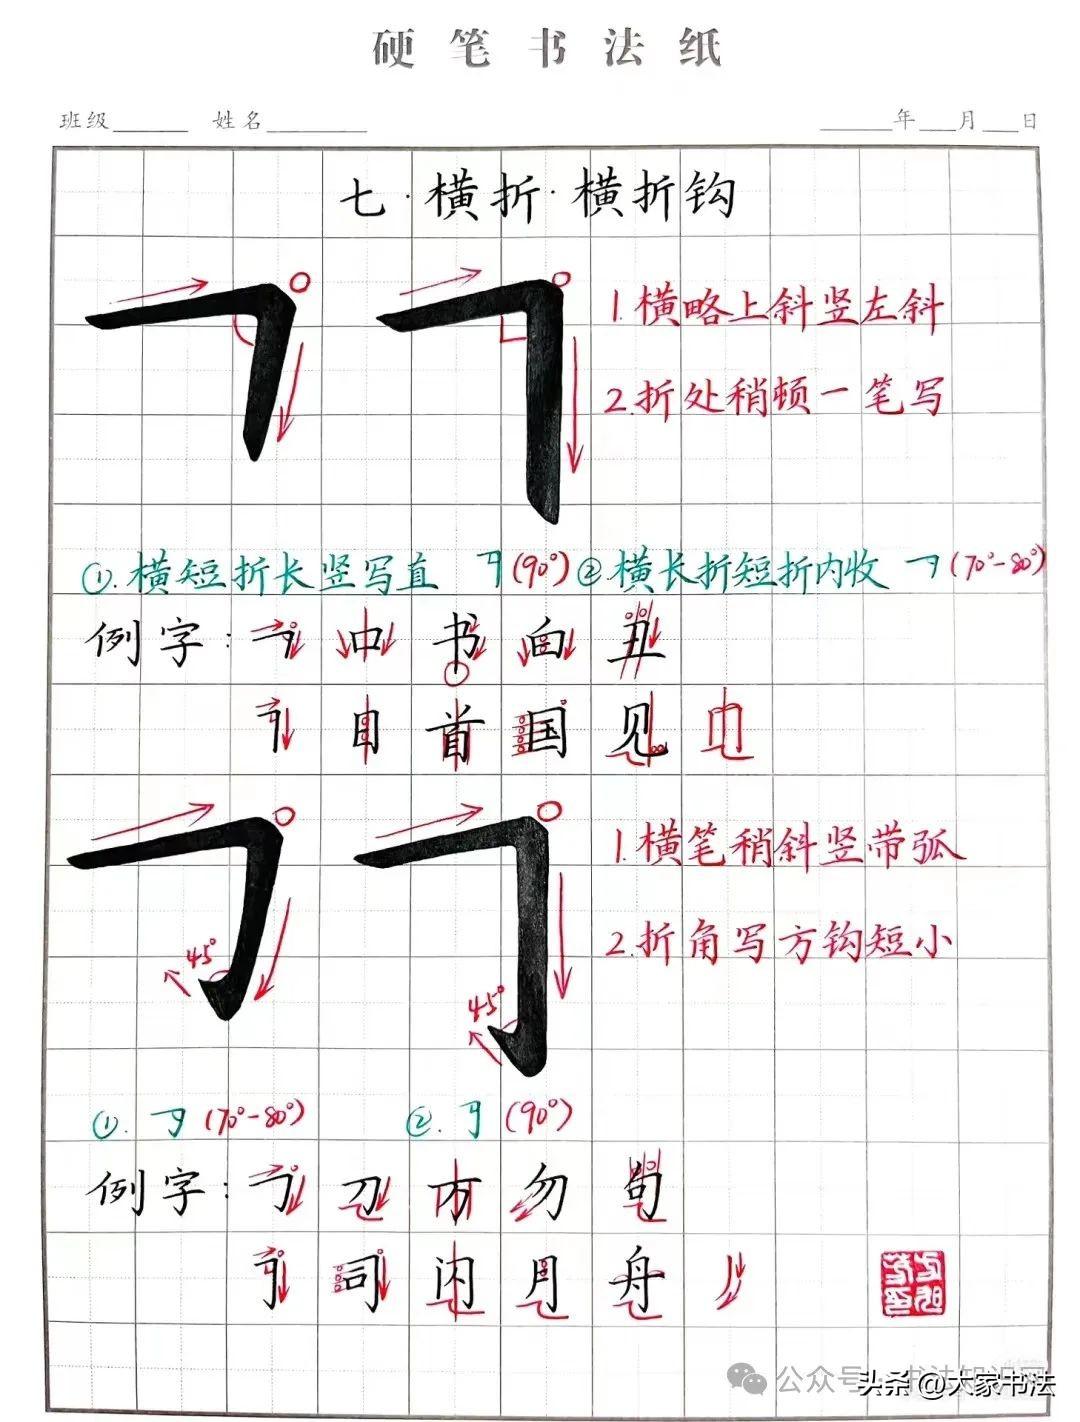 硬笔书法纸
班级 姓名 年 月 日
七·横折·横折钩
1.横略上斜竖左斜
2.折处稍顿一笔写
①.横短折长竖写直 𠃍(90°) ②横长折短折内收 𠃍(70°-80°)
例字: 𠃍 口 书 白 丑
𠃍 目 首 国 见 巾
1.横笔稍斜竖带弧
2.折角写方钩短小
45°
45°
①. 𠃌 (70°-80°) ②. 𠃌 (90°)
例字: 𠃌 刀 方 勿 句
𠃌 司 闪 月 舟
公众号·书法知识网
头条@大家书法